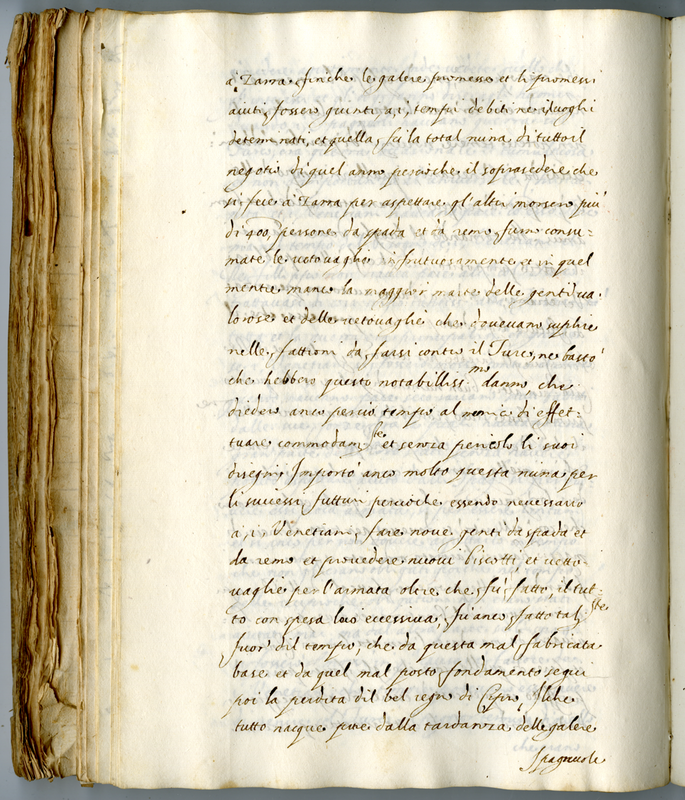 à Zarra, finche le galere promesse et li promessi
aiuti fossero giunti a i tempi debiti ne i luoghi
determinati, et quella, fù la total ruina di tutto il
negotio di quel anno percioche il soprasedere che
si fece à Zarra per aspettare gl'altri morsero più
di 400, persone da spada et da remo, furno consu-
mate le vetovaglie infrutuosamente et in quel
mentre manco la maggior parte delle genti va-
lorose et delle vetovaglie che dovevano suplire
nelle fattioni da farsi contro il Turco, ne bastò
che hebbero questo notabilliss:mo danno, che
diedero anco percio tempo al nemico di effet-
tuare commodam:te et senza pericolo li suoi
disegni, Importò anco molto questa ruina per
li successi futturi percioche essendo necessario
a i Venetiani fare nove genti da spada et
da remo et provedere nuovi biscotti, et vetto-
vaglie per l'armata oltre, che fù fatto, il tut-
to con spesa loro eccessiva, fù anco fatto tal:te
fuor dil tempo, che da questa mal fabricata
base et da quel mal posto fondamento seguì
poi la perdita dil bel regno di Cipro, Ilche
tutto nacque pure dalla tardanza delle galere
Spagnuole